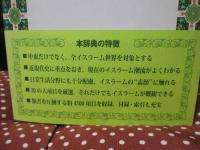 本辞典の特徴
■中東だけでなく、全イスラーム世界を対象とする
■近現代史に重点をおき、現在のイスラーム潮流がよくわかる
■日常生活分野にも十分配慮、イスラームの“素顔”に触れる
■30の大項目を厳選、それだけでもイスラームが概観できる
■類書を圧倒する約4500項目を収録、付録・索引も充実